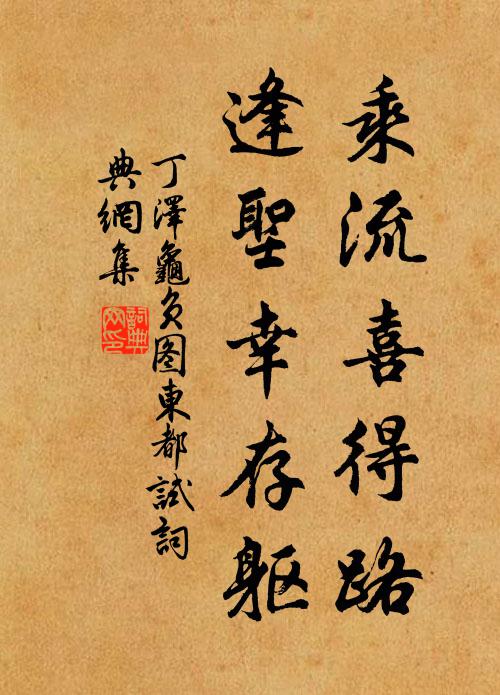 乘流喜得路
逢聖幸存軀
丁澤龜負图東都試詞
典網集
詞典網印